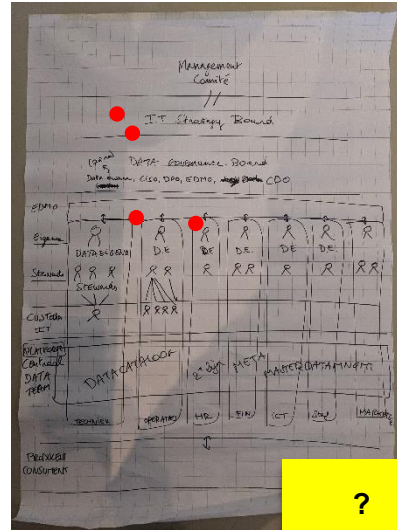 Management
Comité
I.T. Strategy Board
DATA Governance Board
CISO, DPO, EDMO, CDO
EDMO
Eigenaar
DATA EIGENAAR D.E D.E D.E. D.E D.E.
Stewards
STEWARDS
CUSTODIAN
ICT
PLATFORM
Centraal
DATA
TEAM
DATACATALOOG META MASTERDATAMNGMT
TECHNIEK OPERATIES HR FIN ICT
CONSUMENT
?